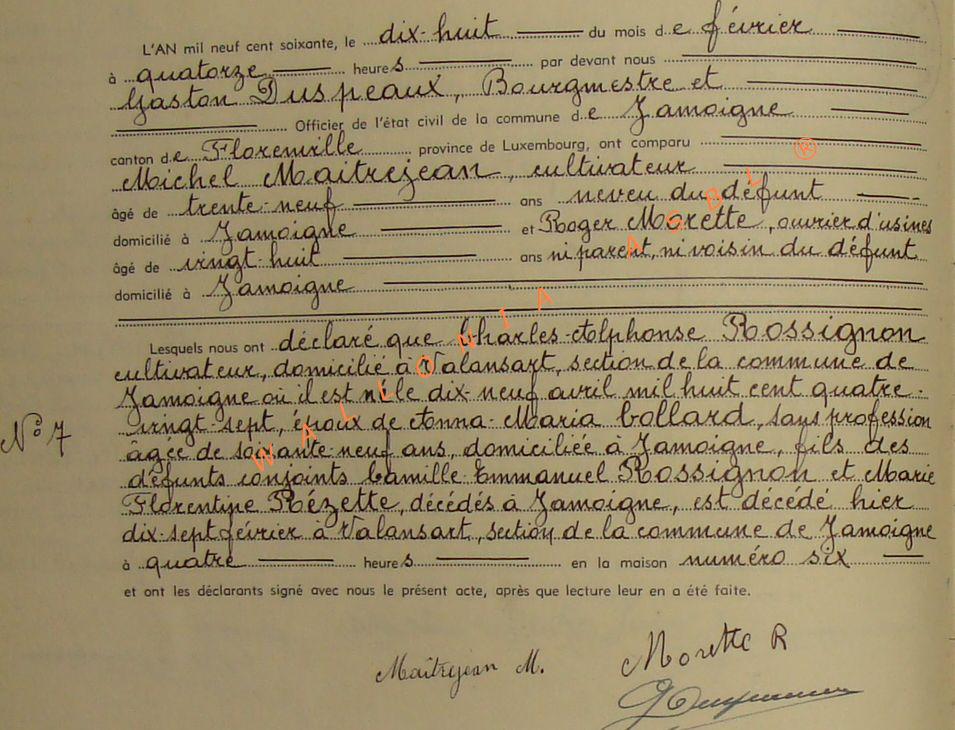 L'AN mil neuf cent soixante, le dix-huit du mois de février
à quatorze heures par devant nous
Gaston Duspeaux, Bourgmestre et
Officier de l'état civil de la commune de Jamoigne
canton de Florenville province de Luxembourg, ont comparu
Michel Maitrejean, cultivateur
âgé de trente-neuf ans neveu du défunt
domicilié à Jamoigne et Roger Morette, ouvrier d'usines
âgé de vingt-huit ans ni parent, ni voisin du défunt
domicilié à Jamoigne
Lesquels nous ont déclaré que Charles-Alphonse Rossignon
cultivateur, domicilié à Valansart, section de la commune de
Jamoigne où il est né le dix-neuf avril mil huit cent quatre-
N° 7
vingt-sept, époux de Anna-Maria Collard, sans profession
âgée de soixante-neuf ans, domiciliée à Jamoigne, fils des
défunts conjoints Camille-Emmanuel Rossignon et Marie
Florentine Rézette, décédés à Jamoigne, est décédé hier
dix-sept février à Valansart, section de la commune de Jamoigne
à quatre heures en la maison numéro six
et ont les déclarants signé avec nous le présent acte, après que lecture leur en a été faite.
Maîtrejean M. Morette R
WALLONIA ASBL ®